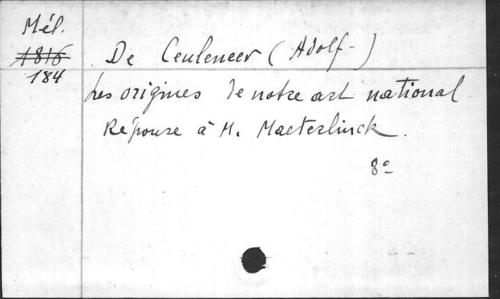 Mél.
1816
184
De Ceuleneer (Adolf-)
Les origines de notre art national
Réponse à M. Maeterlinck.
8°